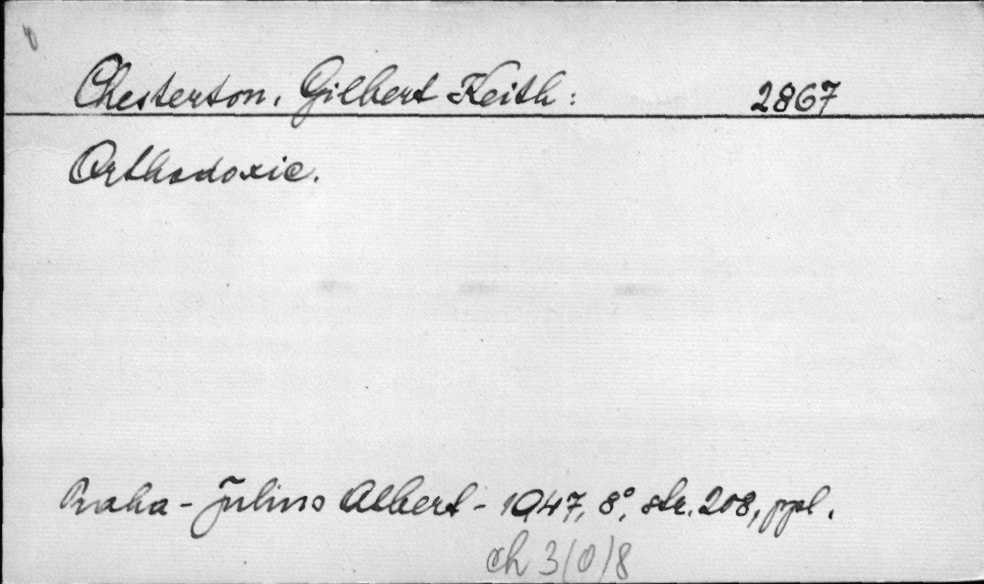 Chesterton, Gilbert Keith: 2867
Orthodoxie.
Praha - Julius Albert - 1947, 8°, str. 208, ppl.
ch 3/0/8